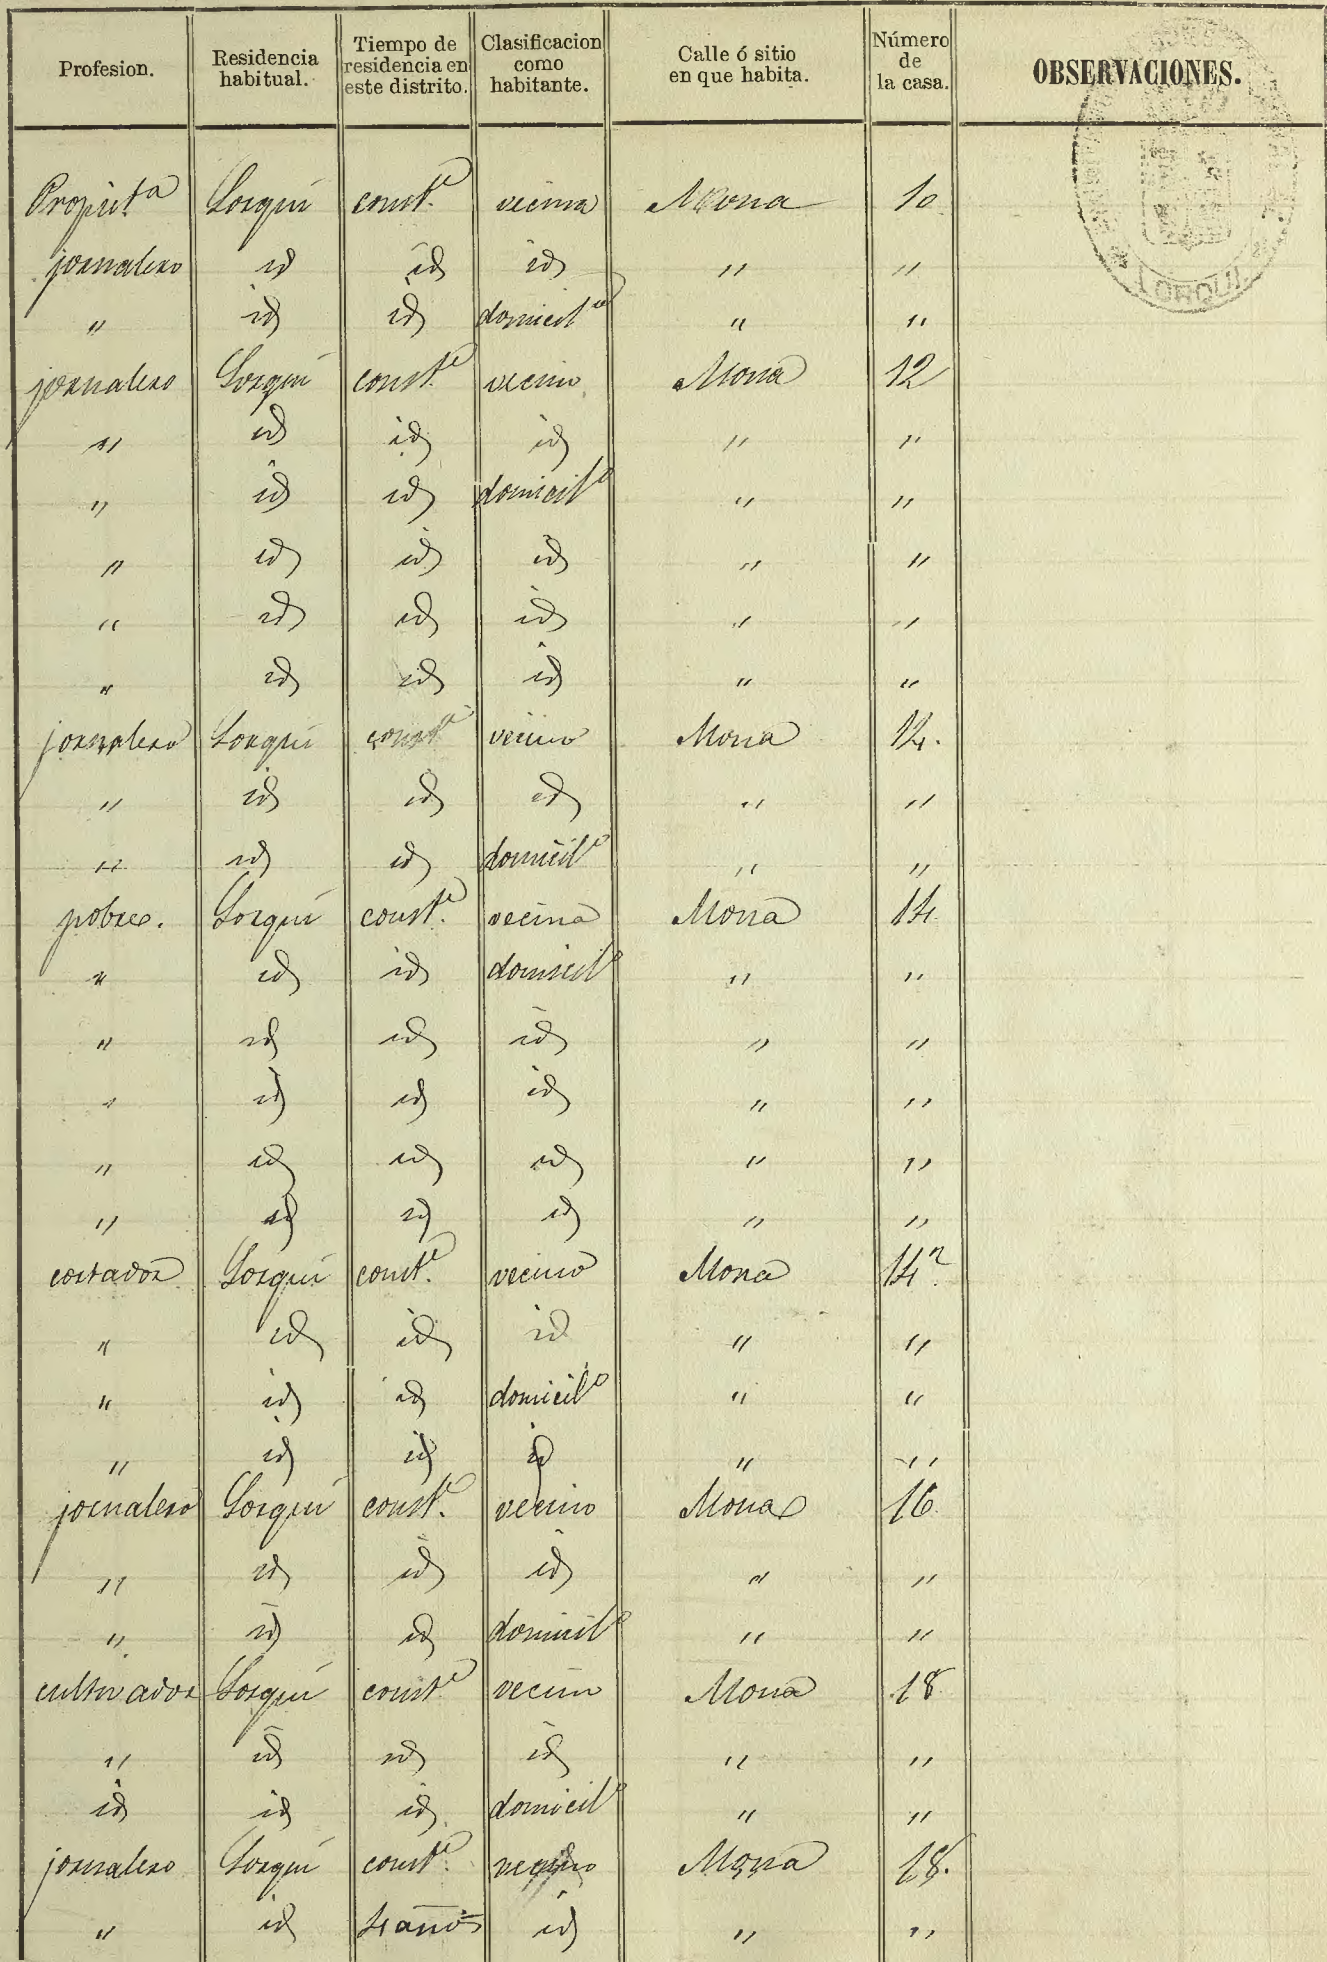 Profesion. Residencia habitual. Tiempo de residencia en este distrito. Clasificacion como habitante. Calle ó sitio en que habita. Número de la casa. OBSERVACIONES.
LORQUI
Propietª Lorquí constᵉ vecina Mona 10
jornalero id id id " "
" id id domicilº " "
jornalero Lorquí constᵉ vecino Mona 12
" id id id " "
" id id domicilº " "
" id id id " "
" id id id " "
" id id id " "
jornalero Lorquí constᵉ vecino Mona 14.
" id id id " "
" id id domicilº " "
pobre. Lorquí constᵉ vecina Mona 14
" id id domicilº " "
" id id id " "
" id id id " "
" id id id " "
" id id id " "
cortador Lorquí constᵉ vecino Mona 14
" id id id " "
" id id domicilº " "
" id id id " "
jornalero Lorquí constᵉ vecino Mona 16
" id id id " "
" id id domicilº " "
cultivador Lorquí constᵉ vecino Mona 18
" id id id " "
id id id domicilº " "
jornalero Lorquí constᵉ vecino Mona 18.
" id 4 años id " "